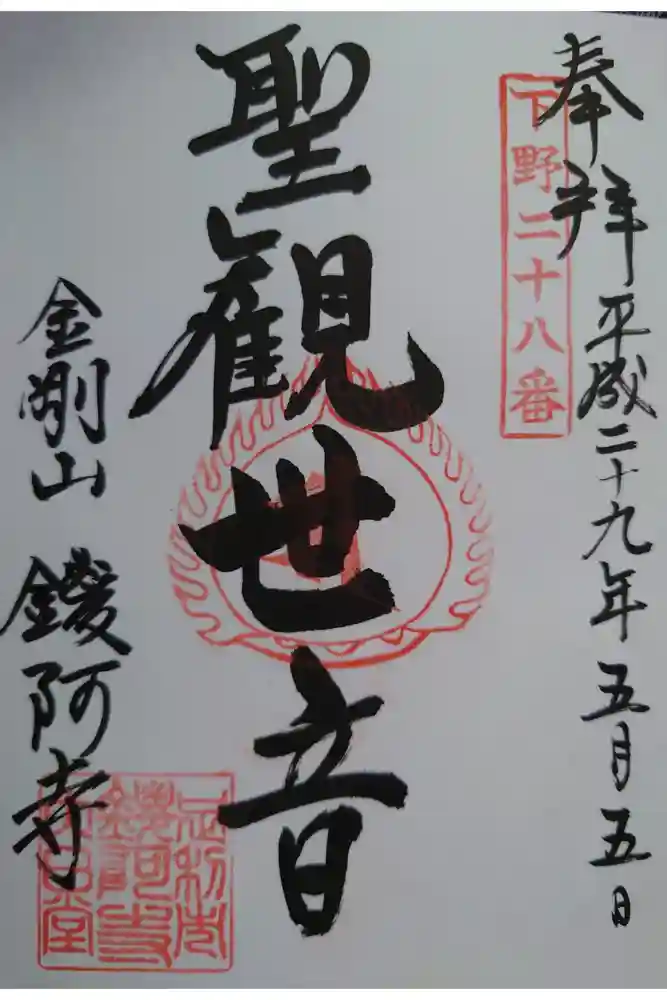 奉拝 平成二十九年五月五日
下野二十八番
聖觀世音
金剛山 鑁阿寺
足利市
鑁阿寺